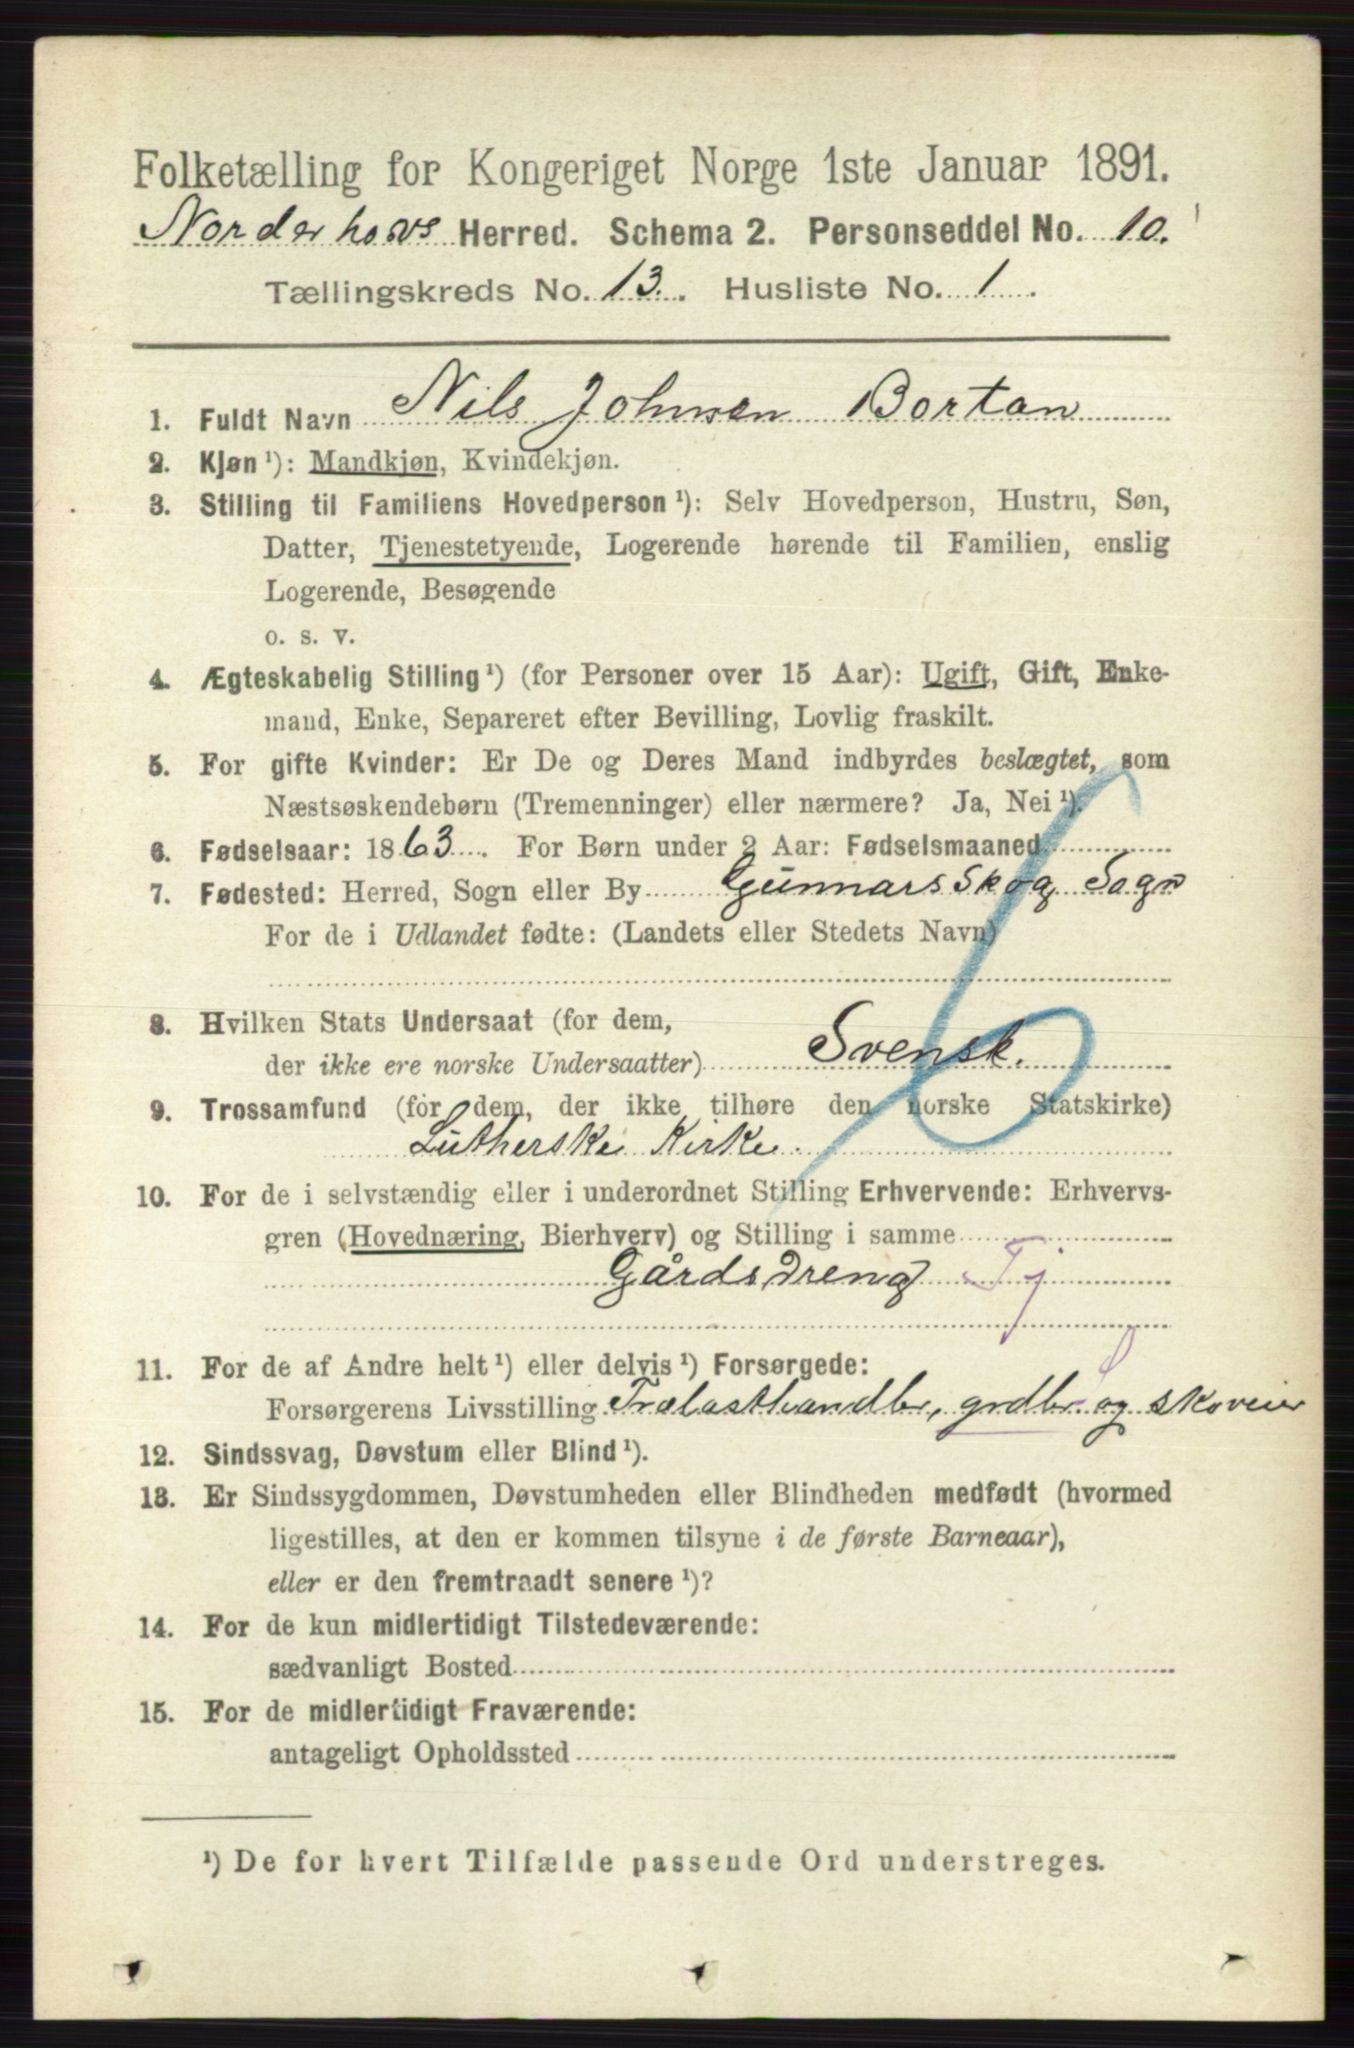 Folketælling for Kongeriget Norge 1ste Januar 1891.
Norderhovs Herred. Schema 2. Personseddel No. 10.
Tællingskreds No. 13. Husliste No. 1
1. Fuldt Navn Nils Johnsen Bortan
2. Kjøn ¹): Mandkjøn, Kvindekjøn.
3. Stilling til Familiens Hovedperson ¹): Selv Hovedperson, Hustru, Søn,
Datter, Tjenestetyende, Logerende hørende til Familien, enslig
Logerende, Besøgende
o. s. v.
4. Ægteskabelig Stilling ¹) (for Personer over 15 Aar): Ugift, Gift, Enke-
mand, Enke, Separeret efter Bevilling, Lovlig fraskilt.
5. For gifte Kvinder: Er De og Deres Mand indbyrdes beslægtet, som
Næstsøskendebørn (Tremenninger) eller nærmere? Ja, Nei ¹).
6. Fødselsaar: 1863. For Børn under 2 Aar: Fødselsmaaned
7. Fødested: Herred, Sogn eller By Gunnarsskog Sogn
For de i Udlandet fødte: (Landets eller Stedets Navn)
8. Hvilken Stats Undersaat (for dem,
der ikke ere norske Undersaatter) Svensk.
9. Trossamfund (for dem, der ikke tilhøre den norske Statskirke)
Lutherske Kirke.
10. For de i selvstændig eller i underordnet Stilling Erhvervende: Erhvervs-
gren (Hovednæring, Bierhverv) og Stilling i samme
Gårdsdreng Tj
11. For de af Andre helt ¹) eller delvis ¹) Forsørgede:
Forsørgerens Livsstilling Trælasthandler, grdbr og skoveier
12. Sindssvag, Døvstum eller Blind ¹).
13. Er Sindssygdommen, Døvstumheden eller Blindheden medfødt (hvormed
ligestilles, at den er kommen tilsyne i de første Barneaar),
eller er den fremtraadt senere ¹)?
14. For de kun midlertidigt Tilstedeværende:
sædvanligt Bosted
15. For de midlertidigt Fraværende:
antageligt Opholdssted
¹) De for hvert Tilfælde passende Ord understreges.